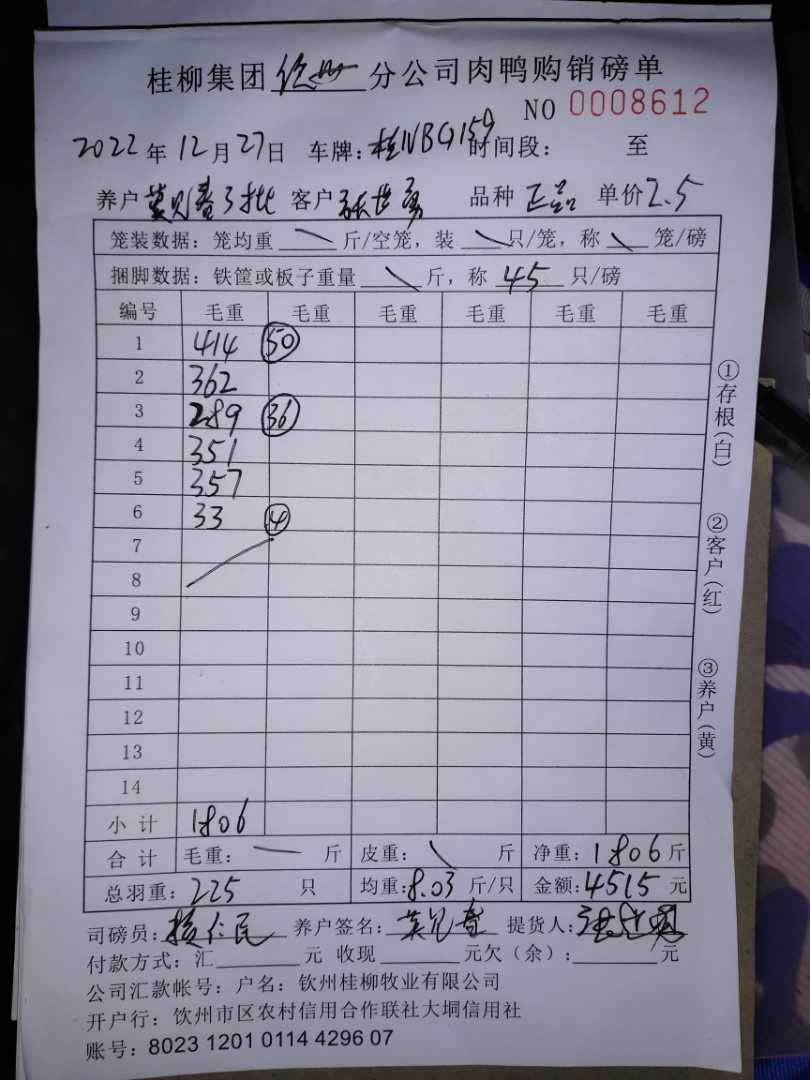 桂柳集团钦州分公司肉鸭购销磅单
NO 0008612
2022年12月27日 车牌:桂NBG159 时间段: 至
养户莫见春3批 客户张世勇 品种正品 单价2.5
笼装数据:笼均重\斤/空笼,装\只/笼,称\笼/磅
捆脚数据:铁筐或板子重量\斤,称45只/磅
编号 毛重 毛重 毛重 毛重 毛重 毛重
1 414 50
2 362
3 289 36
4 351
5 357
6 33 4
7
8
9
10
11
12
13
14
小计 1806
合计 毛重:一斤 皮重:\斤 净重:1806斤
总羽重:225只 均重:8.03斤/只 金额:4515元
司磅员:仁民 养户签名:莫见春 提货人:
付款方式:汇 元 收现 元欠(余): 元
公司汇款帐号:户名:钦州桂柳牧业有限公司
开户行:饮州市区农村信用合作联社大垌信用社
账号:8023 1201 0114 4296 07
①存根(白)
②客户(红)
③养户(黄)